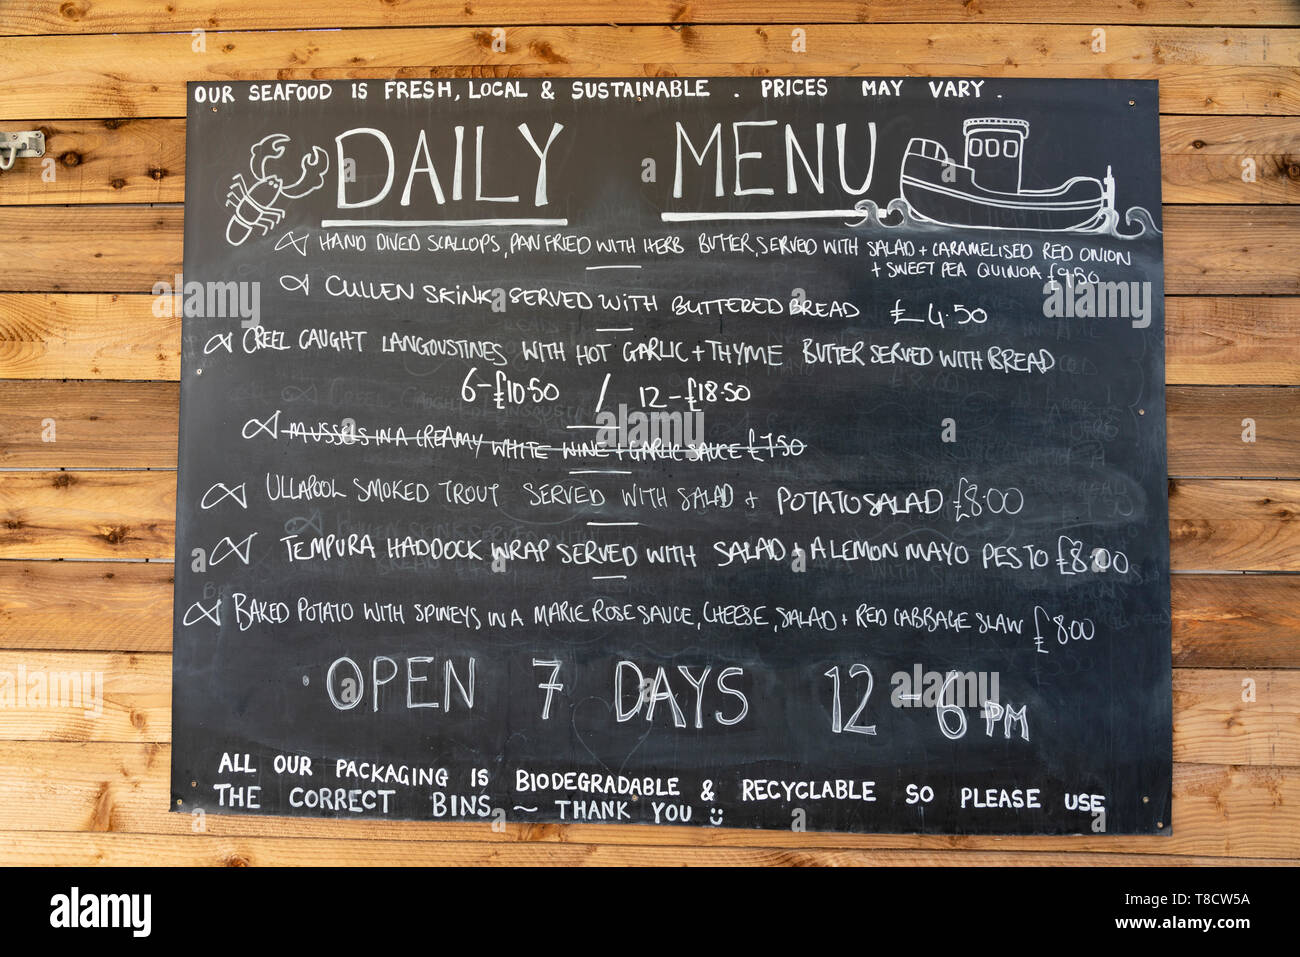 OUR SEAFOOD IS FRESH, LOCAL & SUSTAINABLE . PRICES MAY VARY .
DAILY MENU
HAND DIVED SCALLOPS, PAN FRIED WITH HERB BUTTER, SERVED WITH SALAD + CARAMELISED RED ONION
+ SWEET PEA QUINOA £9.50
CULLEN SKINK SERVED WITH BUTTERED BREAD £4.50
CREEL CAUGHT LANGOUSTINES WITH HOT GARLIC + THYME BUTTER SERVED WITH BREAD
6-£10.50 / 12-£18.50
MUSSELS IN A CREAMY WHITE WINE + GARLIC SAUCE £7.50
ULLAPOOL SMOKED TROUT SERVED WITH SALAD + POTATO SALAD £8.00
TEMPURA HADDOCK WRAP SERVED WITH SALAD + A LEMON MAYO PESTO £8.00
BAKED POTATO WITH SPINEYS IN A MARIE ROSE SAUCE, CHEESE, SALAD + RED CABBAGE SLAW £8.00
OPEN 7 DAYS 12-6PM
ALL OUR PACKAGING IS BIODEGRADABLE & RECYCLABLE SO PLEASE USE
THE CORRECT BINS ~ THANK YOU
a alamy
alamy
Image ID: T8CW5A
www.alamy.com